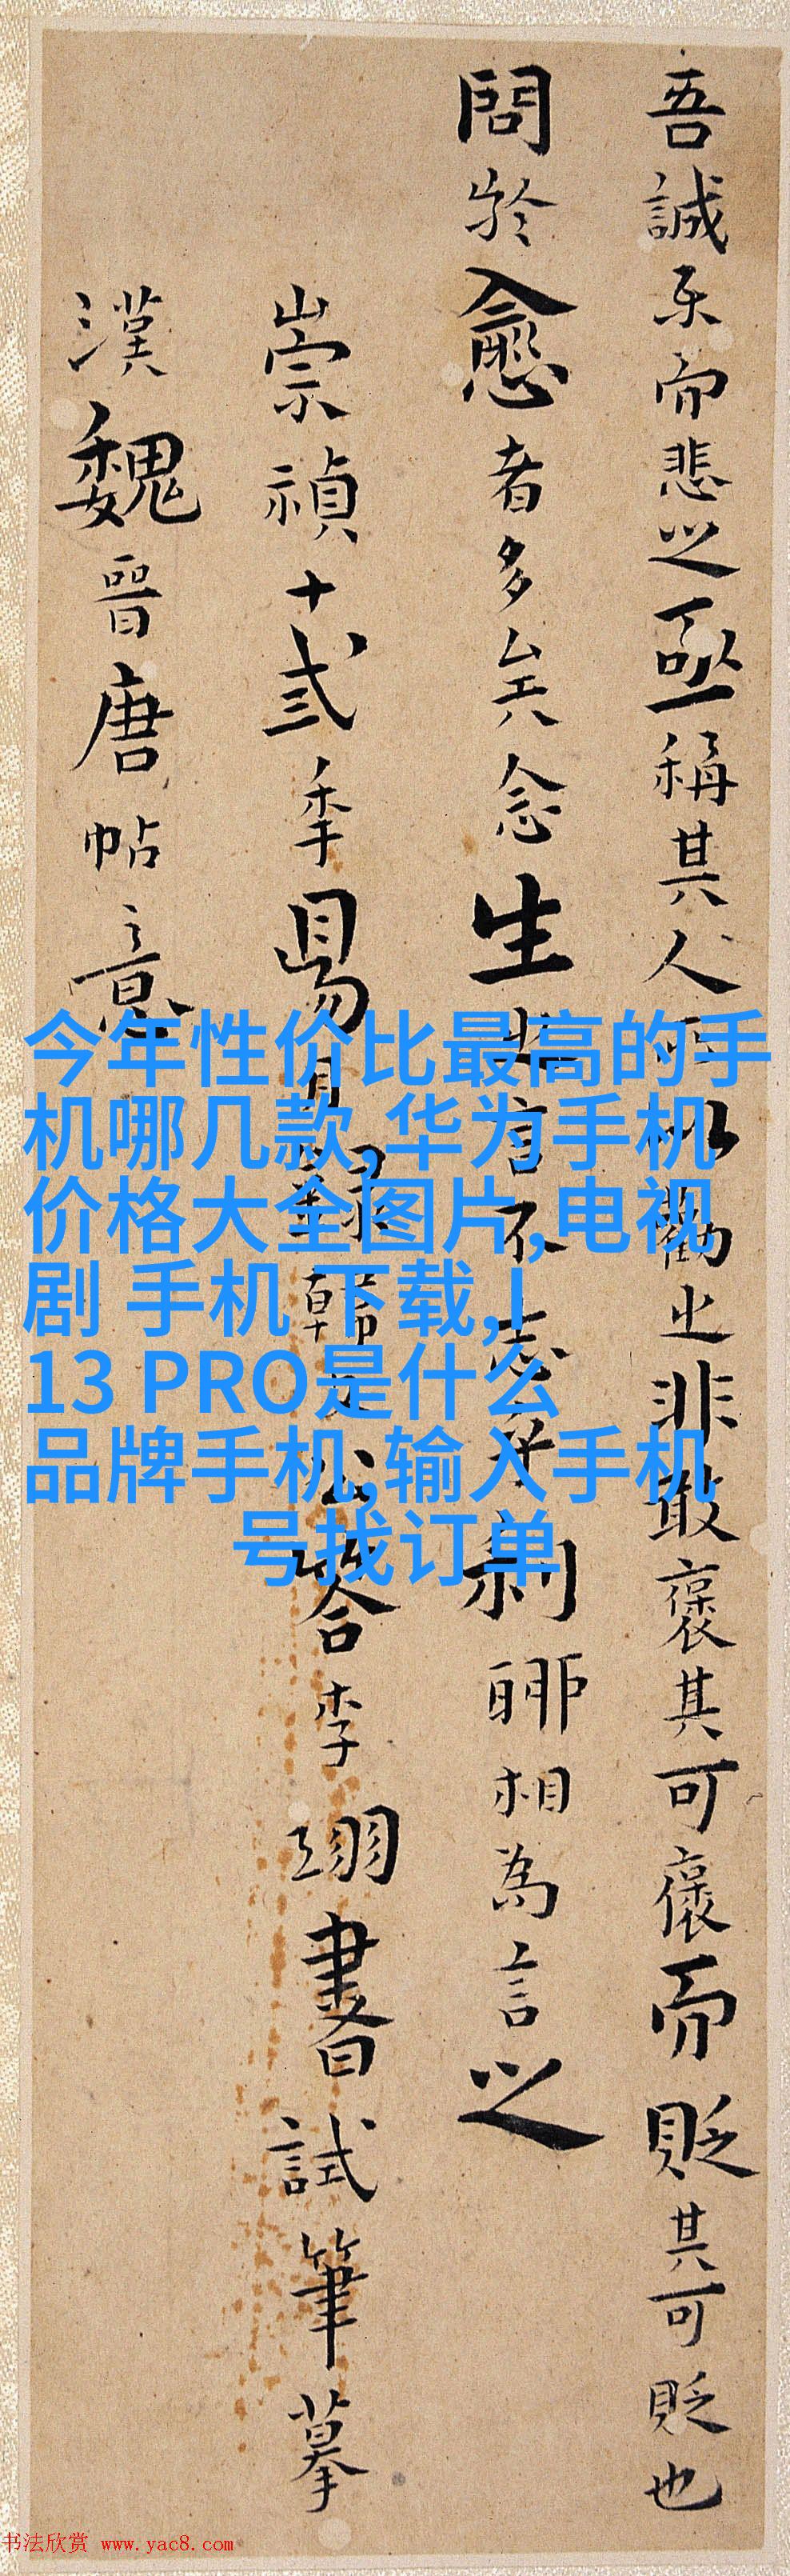 吾誠乐而悲之亟稱其人所以勸之非敢褒其可褒而貶其可貶也
問於愈者多矣念生之言不志乎利聊相為言之
崇禎十弎秊昜月錄韓文公答李翊書試筆摹
漢魏晉唐帖意
今年性价比最高的手
机哪几款,华为手机
价格大全图片,电视
剧 手机 下载,I
13 PRO是什么
品牌手机,输入手机
号找订单
书法欣赏 www.yac8.com